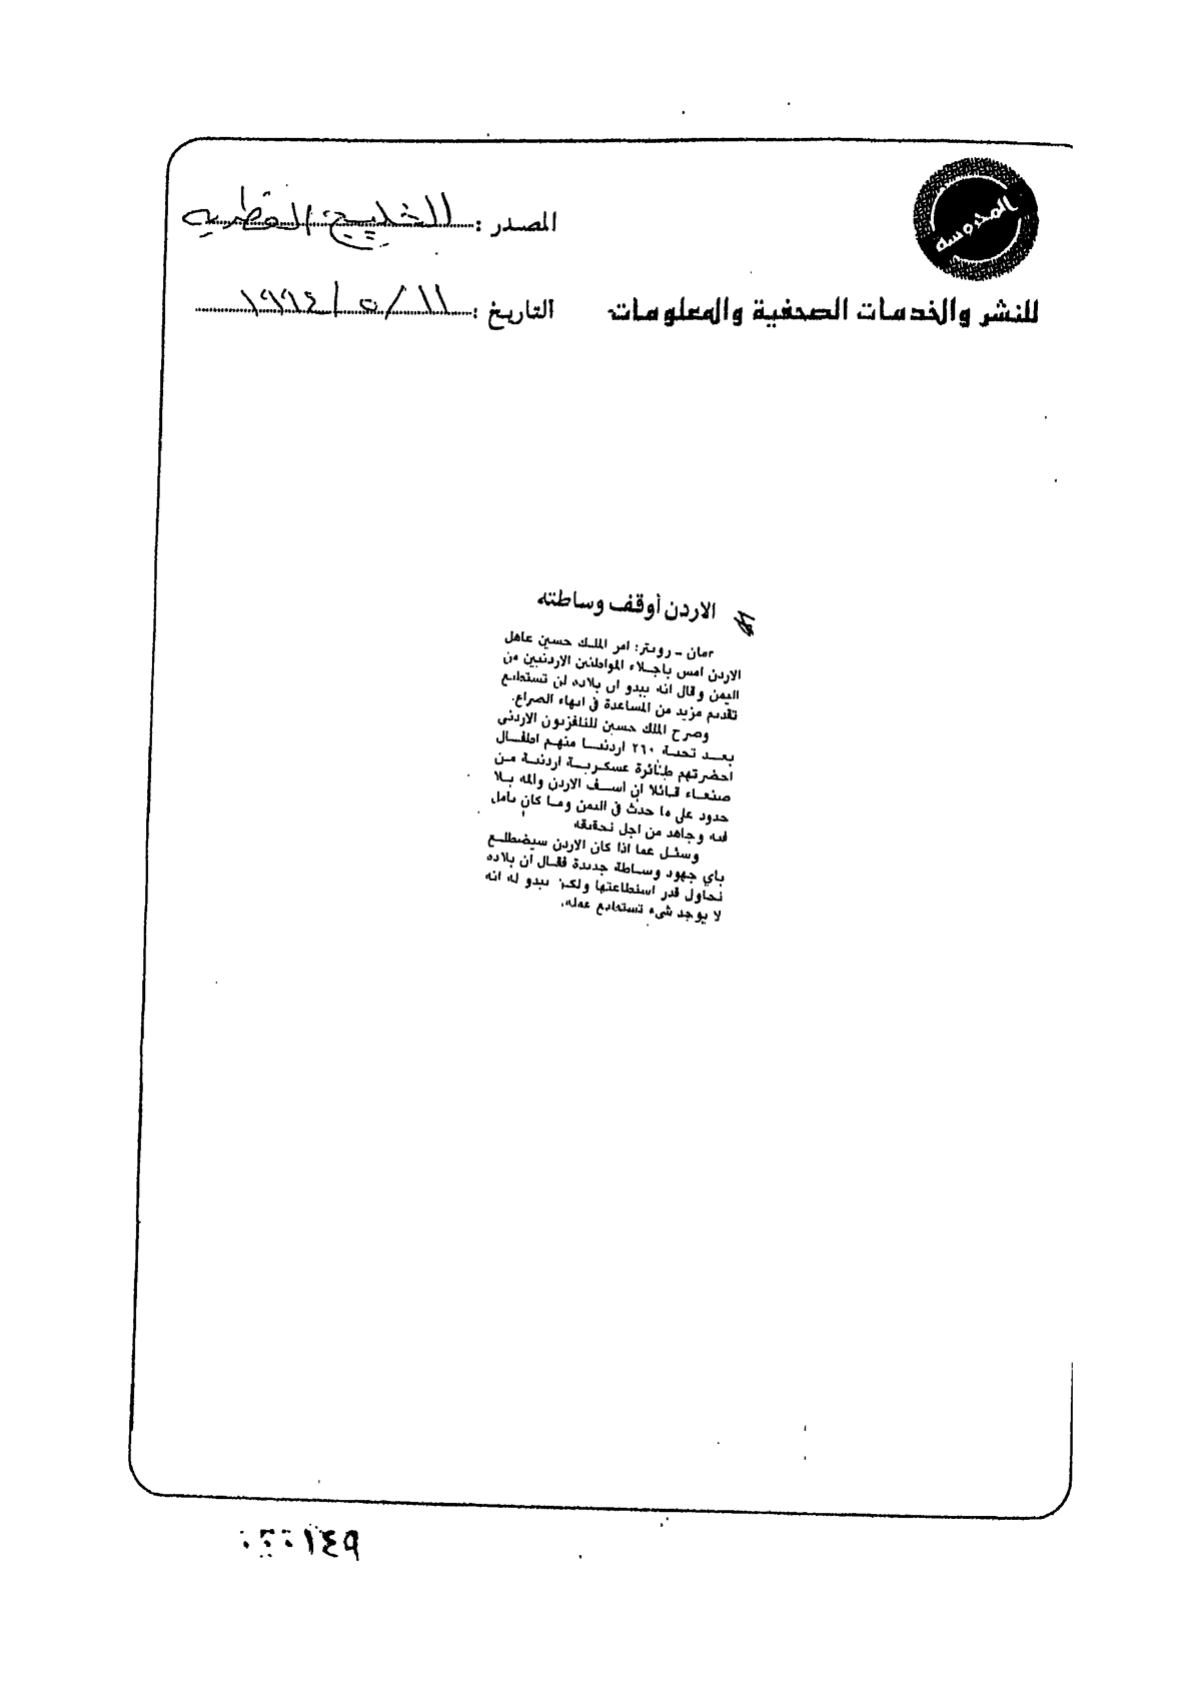 المحروسة
المصدر : الخليج القطريه
للنشر والخدمات الصحفية والمعلومات
التاريخ : ١١ / ٥ / ١٩٩٤
الاردن أوقف وساطته
عمان - رويتر: امر الملك حسين عاهل
الاردن امس باجلاء المواطنين الاردنيين من
اليمن وقال انه يبدو ان بلاده لن تستطيع
تقديم مزيد من المساعدة في انهاء الصراع.
وصرح الملك حسين للتلفزيون الاردني
بعد تحية ٢٦٠ اردنيا منهم اطفال
احضرتهم طائرة عسكرية اردنية من
صنعاء قائلا ان اسف الاردن والمه بلا
حدود على ما حدث في اليمن وما كان يامل
فيه وجاهد من اجل تحقيقه
وسئل عما اذا كان الاردن سيضطلع
باي جهود وساطة جديدة فقال ان بلاده
تحاول قدر استطاعتها ولكن يبدو له انه
لا يوجد شيء تستطيع عمله.
١٤٩